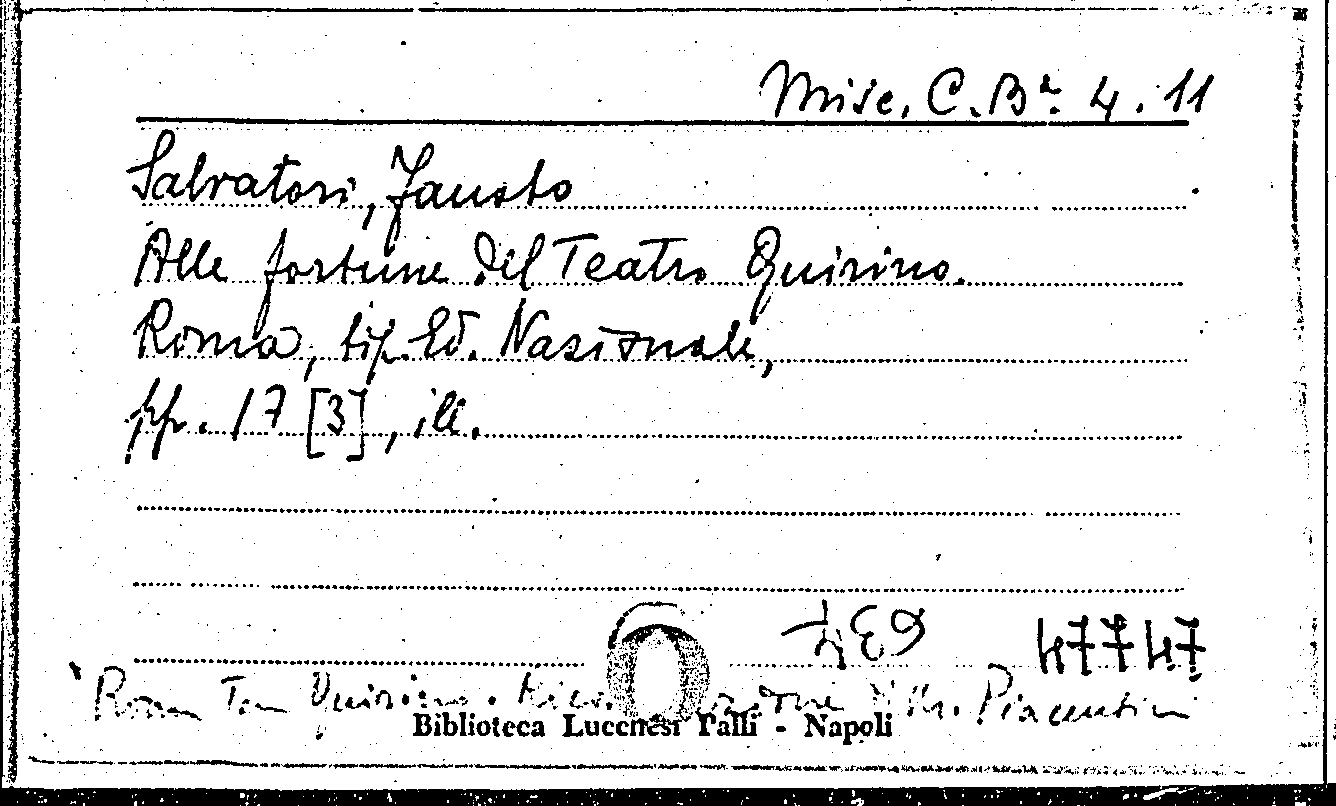 Misc. C. Bª. 4. 11
Salvatori, Fausto
Alle fortune del Teatro Quirino.
Roma, tip. Ed. Nazionale,
pp. 17 [3], ill.
47747
Roma Quirino. Piacentini
Biblioteca Lucchesi Palli - Napoli